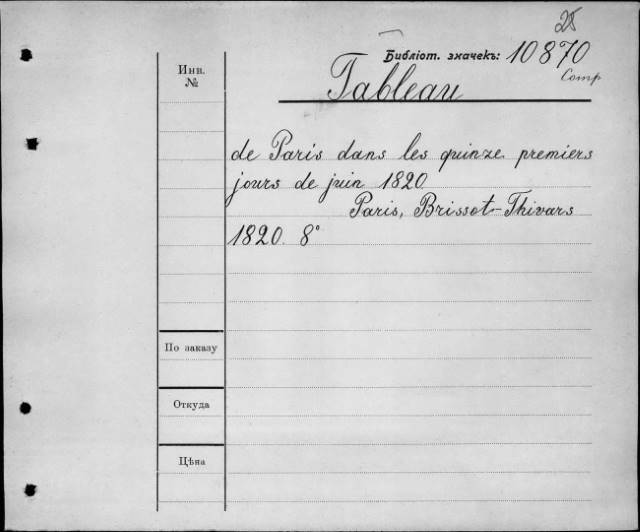 25
Библіот. значекъ: 10870
Comp
Инв.
№
Tableau
de Paris dans les quinze premiers
jours de juin 1820
Paris, Brissot-Thivars
1820. 8°
По заказу
Откуда
Цѣна